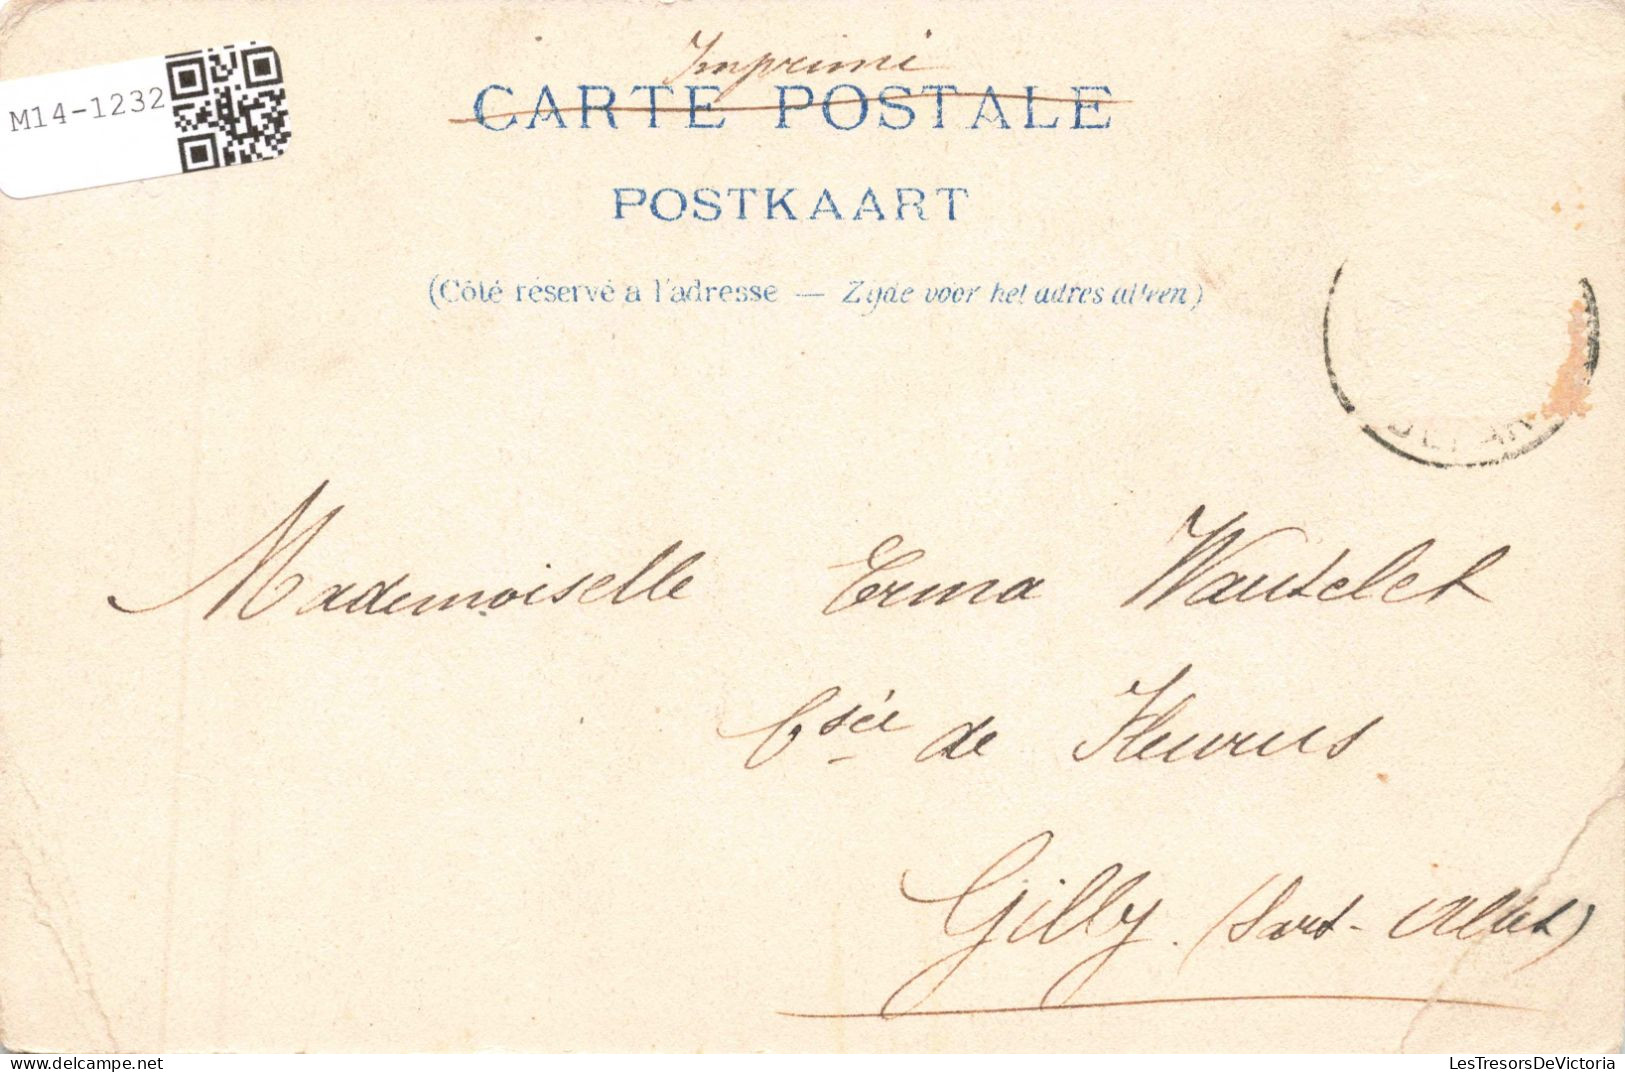 M14-1232
Imprimé
CARTE POSTALE
POSTKAART
(Côté réservé a l'adresse — Zyde voor het adres alleen)
Mademoiselle Erma Wautelet
Csée de Fleurus
Gilly. (Sart-Allet)
LesTresorsDeVictoria